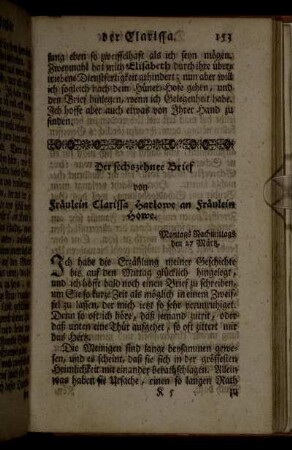 der Clarissa. 153
sung eben so zweiffelhaft als ich seyn mögen.
Zweymahl hat mich Elisabeth durch ihre über-
triebene Dienstfertigkeit gehindert; nun aber will
ich sogleich nach dem Hüner-Hofe gehen, und
den Brief hinlegen, wenn ich Gelegenheit habe.
Ich hoffe aber auch etwas von Ihrer Hand zu
finden.
Der sechszehnte Brief
von
Fräulein Clarissa Harlowe an Fräulein
Howe.
Montags Nachmittags
den 27 März.
Ich habe die Erzählung meiner Geschichte
bis auf den Mittag glücklich hingelegt,
und ich hoffe bald noch einen Brief zu schreiben,
um Sie so kurze Zeit als möglich in einem Zweif-
fel zu lassen, der mich jetzt so sehr verunruhiget.
Denn so oft ich höre, daß jemand tritt, oder
daß unten eine Thür aufgehet, so oft zittert mir
das Herz.
Die Meinigen sind lange beysammen gewe-
sen, und es scheint, daß sie sich in der grössesten
Heimlichkeit mit einander berathschlagen. Allein
was haben sie Ursache, einen so langen Rath
K 5 zu